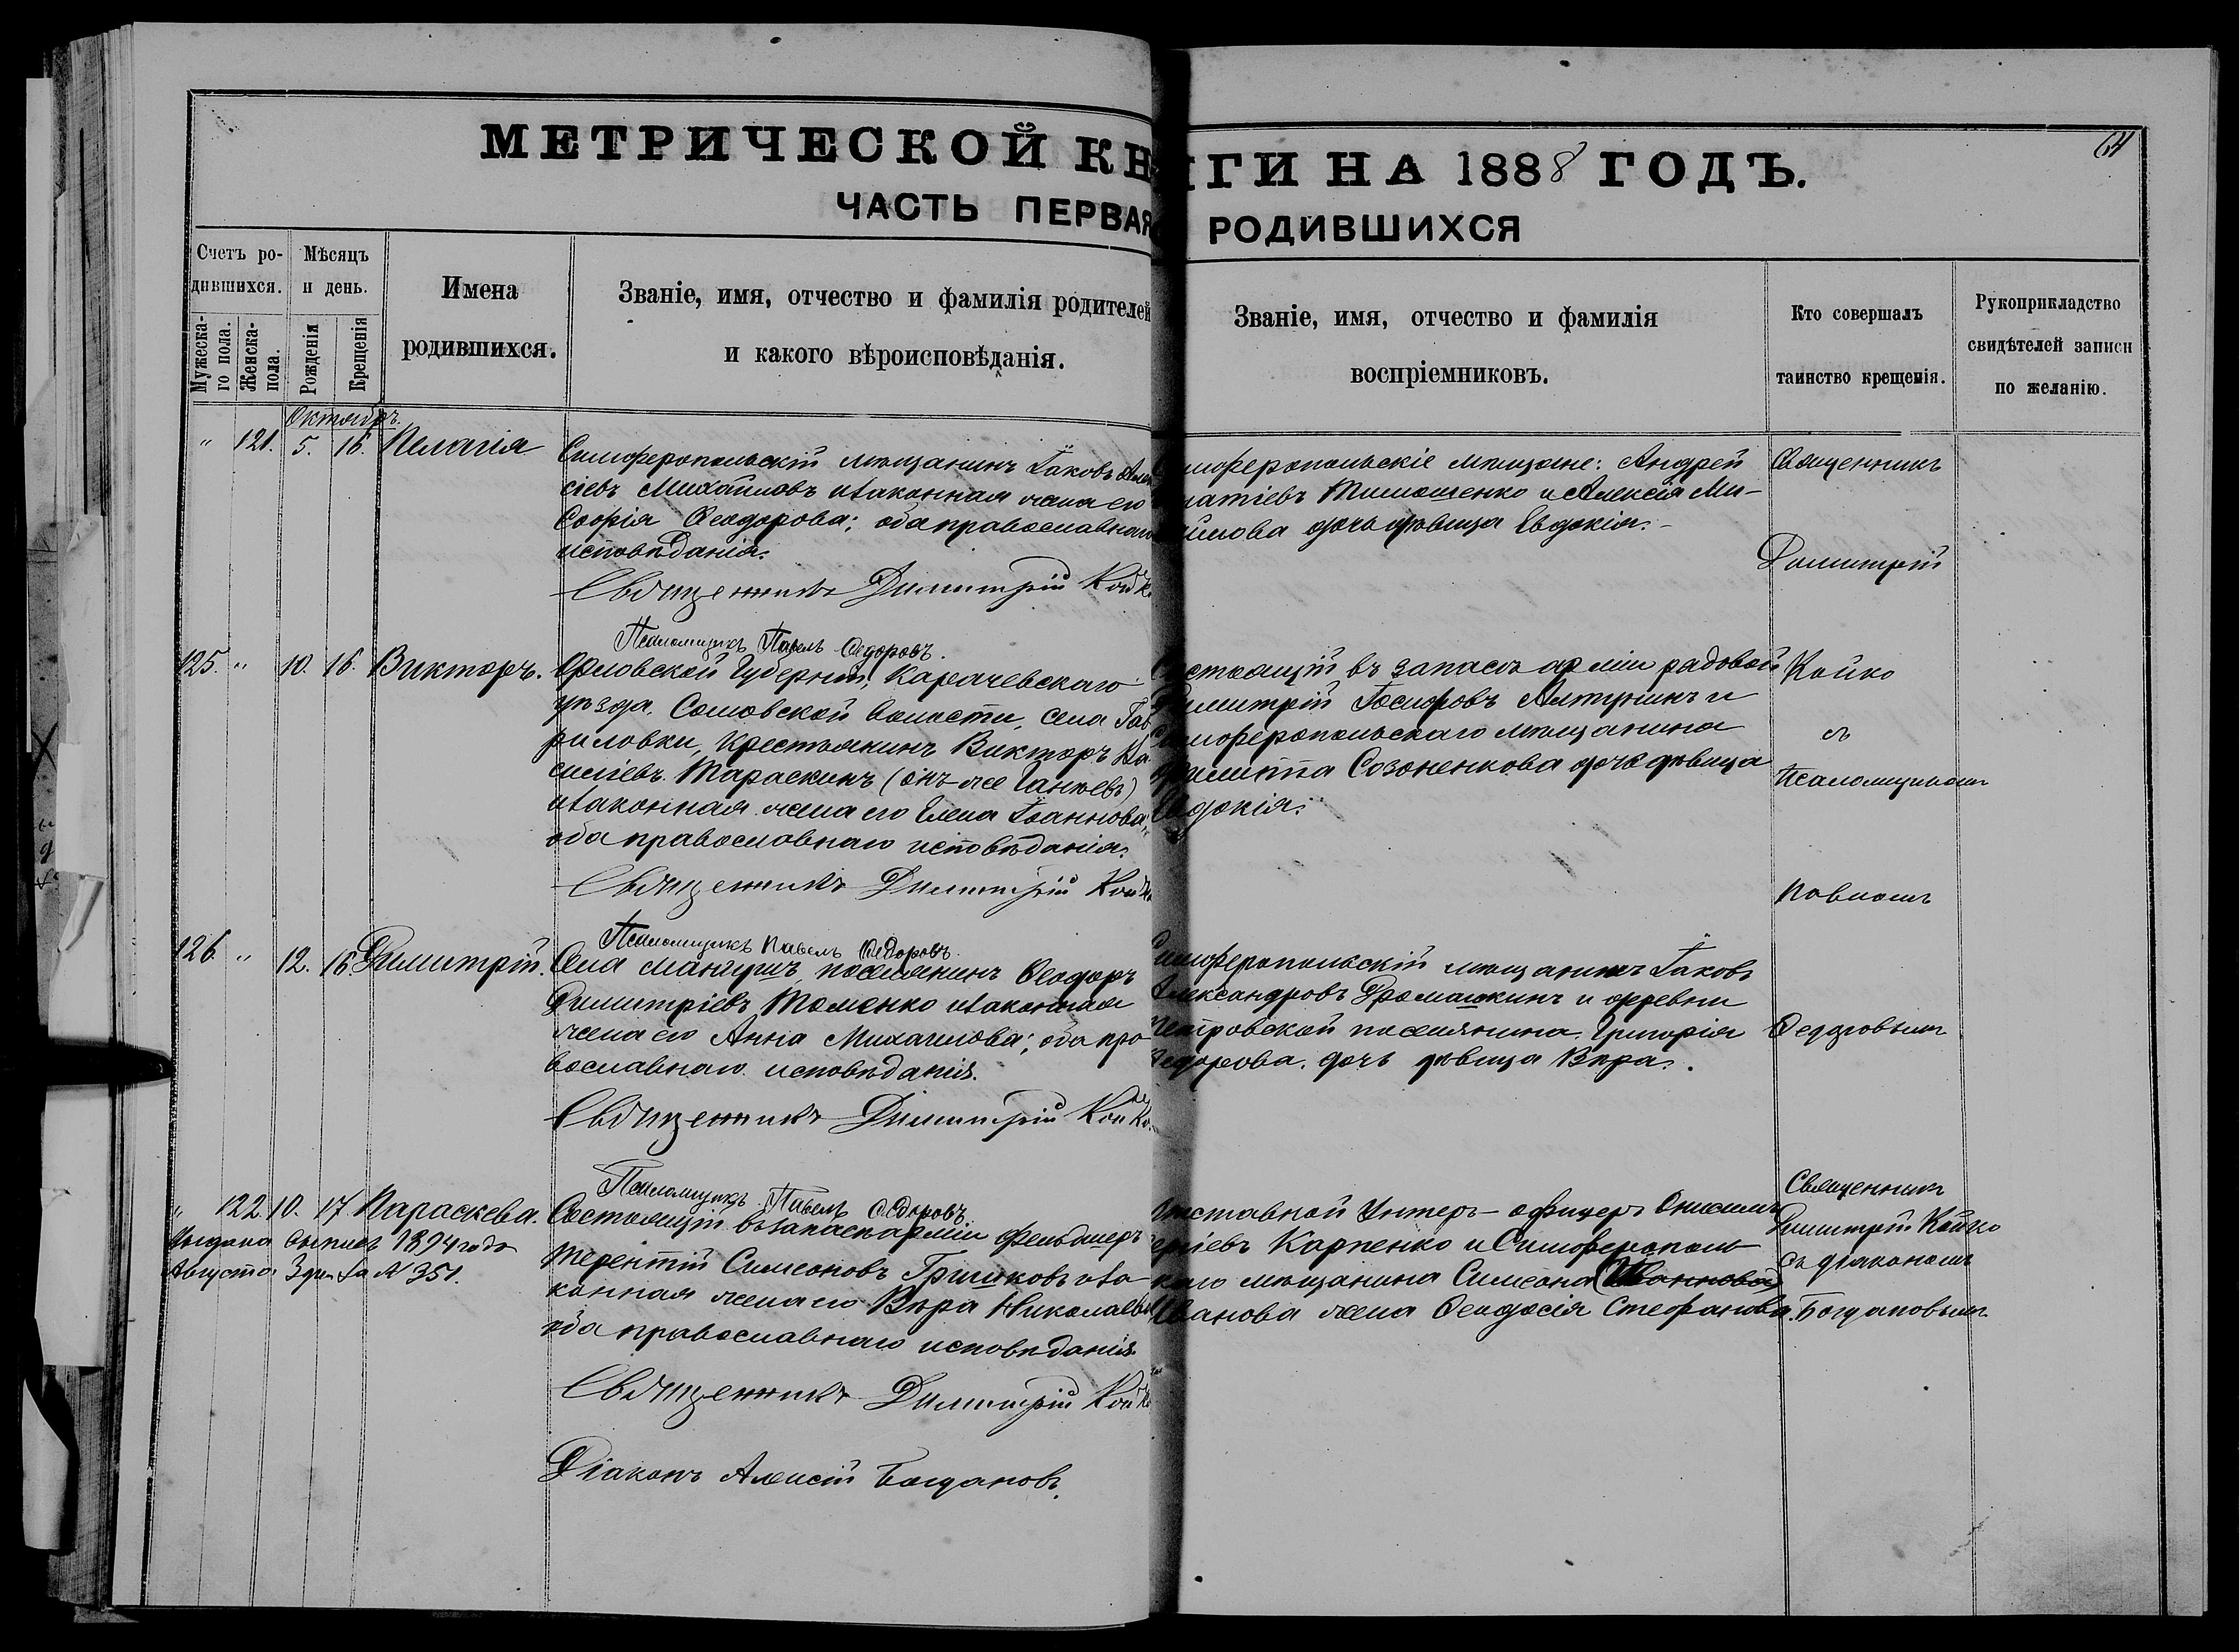 64
МЕТРИЧЕСКОЙ КНИГИ НА 1888 ГОДЪ.
ЧАСТЬ ПЕРВАЯ РОДИВШИХСЯ
Счетъ ро-
дившихся.
Мужеска-
го пола.
Женска-
пола.
Мѣсяцъ
и день.
Рожденія
Крещенія
Имена
родившихся.
Званіе, имя, отчество и фамилія родителей
и какого вѣроисповѣданія.
Званіе, имя, отчество и фамилія
воспріемниковъ.
Кто совершалъ
таинство крещенія.
Рукоприкладство
свидѣтелей записи
по желанію.
Октябрь.
" 121. 5. 16. Пелагія
Симферопольскій мѣщанинъ Іаковъ Алек
сіевъ Михаиловъ и законная жена его
Софія Ѳеодорова; оба православнаго
исповѣданія.
Священникъ Димитрій Койко
Псаломщикъ Павелъ Ѳедоровъ.
имферопольскіе мѣщане: Андрей
натіевъ Тимошенко и Алексія Ми-
аилова дочь дѣвица Евдокія.-
Священникъ
Димитрій
125. " 10. 16. Викторъ.
Орловской Губерніи, Карачевскаго
уѣзда, Сомовской волости, села Гав
риловки, крестьянинъ Викторъ Ва
силіевъ Тараскинъ (онъ-же Ганюевъ)
и законная жена его Елена Іоаннова;
оба православнаго исповѣданія.
Священникъ Димитрій Койко
Псаломщикъ Павелъ Ѳедоровъ.
Состоящій въ запасѣ арміи рядовой
Димитрій Іосифовъ и
Симферопольскаго мѣщанина
Филиппа Созоненкова дочь дѣвица
Евдокія.
Койко
съ
Псаломщикомъ
Павломъ
126. " 12. 16. Димитрій.
Села Мангушъ поселянинъ Ѳеодоръ
Димитріевъ Томенко и законная
жена его Анна Михаилова; оба пра-
вославнаго исповѣданія.
Священникъ Димитрій Койко
Псаломщикъ Павелъ Ѳедоровъ.
Симферопольскій мѣщанинъ Іаковъ
Александровъ Дромашкинъ и деревни
Петровской поселянина Григорія
Ѳедорова дочь дѣвица Вѣра.
Ѳедоровымъ
" 122. 10. 17. Параскева.
Выдана выпись 1894 года
Августа 3 дня за № 351.
Состоящій въ запасѣ арміи фельдшеръ
Терентій Симеоновъ Гришковъ и за-
конная жена его Вѣра Николаева
оба православнаго исповѣданія.
Священникъ Димитрій Койко
Діаконъ Алексій Богдановъ.
Отставной Унтеръ-офицеръ Онисимъ
Сергіевъ Карпенко и Симферополь-
скаго мѣщанина Симеона (Иваннова)
Иванова жена Ѳеодосія Стефанова.
Священникъ
Димитрій Койко
съ діакономъ
Богдановымъ